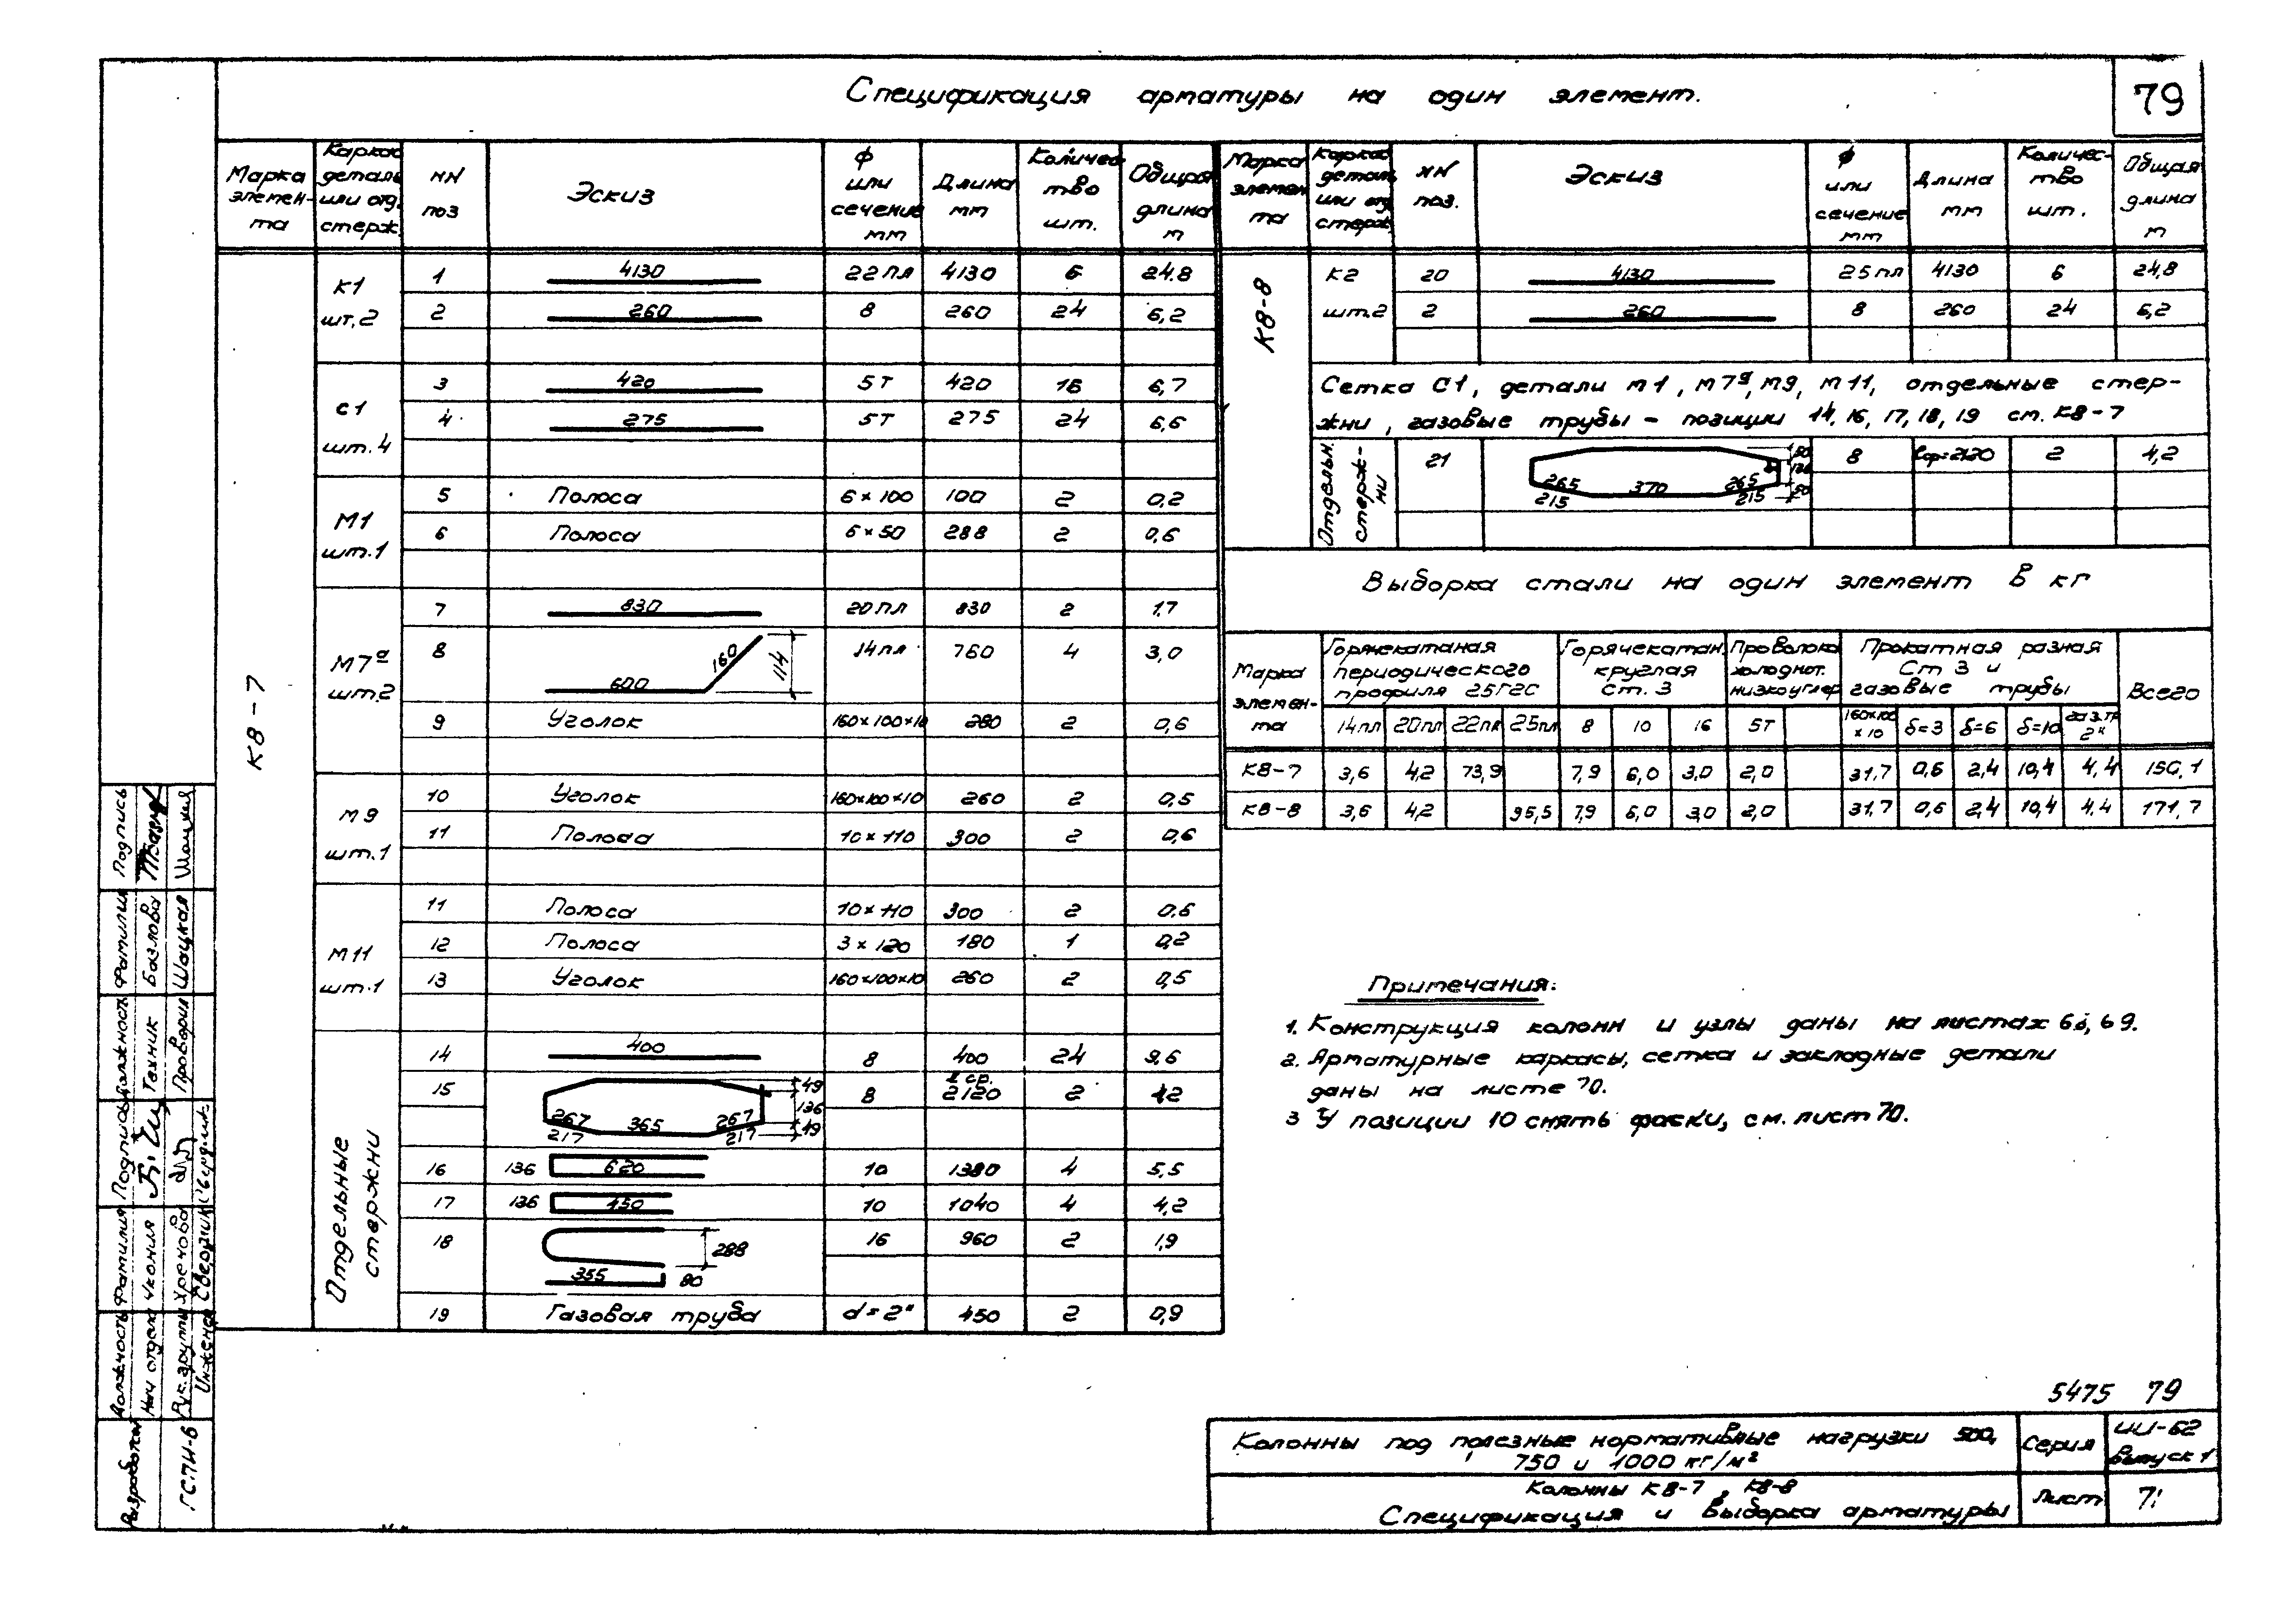 Спецификация арматуры на один элемент.
79
Марка элемен-та | Каркас деталь или отд. стерж. | NN поз | Эскиз | Ф или сечение мм | Длина мм | Количество шт. | Общая длина м
К8-7
К1 шт.2
1 | 4130 | 22пл | 4130 | 6 | 24.8
2 | 260 | 8 | 260 | 24 | 6,2
С1 шт.4
3 | 420 | 5Т | 420 | 16 | 6,7
4 | 275 | 5Т | 275 | 24 | 6,6
М1 шт.1
5 | Полоса | 6×100 | 100 | 2 | 0,2
6 | Полоса | 6×50 | 288 | 2 | 0,6
М7а шт.2
7 | 830 | 20пл | 830 | 2 | 1.7
8 | 600 160 114 | 14пл | 760 | 4 | 3,0
9 | Уголок | 160×100×10 | 280 | 2 | 0,6
М9 шт.1
10 | Уголок | 160×100×10 | 260 | 2 | 0,5
11 | Полоса | 10×110 | 300 | 2 | 0,6
М11 шт.1
11 | Полоса | 10×110 | 300 | 2 | 0.6
12 | Полоса | 3×120 | 180 | 1 | 0,2
13 | Уголок | 160×100×10 | 260 | 2 | 0,5
Отдельные стержни
14 | 400 | 8 | 400 | 24 | 9.6
15 | 267 365 267 217 217 49 136 49 | 8 | l ср. 2120 | 2 | 4,2
16 | 136 620 | 10 | 1380 | 4 | 5,5
17 | 136 450 | 10 | 1040 | 4 | 4,2
18 | 288 355 80 | 16 | 960 | 2 | 1,9
19 | Газовая труба | d=2" | 450 | 2 | 0,9
Марка элемен та | каркас деталь или отд стерж. | NN поз. | Эскиз | Ф или сечение мм | Длина мм | Количес-тво шт. | Общая длина м
К8-8
К2 шт.2
20 | 4130 | 25пл | 4130 | 6 | 24,8
2 | 260 | 8 | 260 | 24 | 6,2
Сетка С1, детали М1, М7а, М9, М11, отдельные стер-
жни, газовые трубы - позиции 14, 16, 17, 18, 19 см. К8-7
Отдельн. стерж-ни
21 | 265 370 265 215 215 50 136 50 | 8 | lср=2120 | 2 | 4,2
Выборка стали на один элемент в кг
Марка элемен-та | Горячекатаная периодического профиля 25Г2С | Горячекатан. круглая Ст. 3 | Проволока холоднот. низкоуглер. | Прокатная разная Ст 3 и газовые трубы | Всего
14пл | 20пл | 22пл | 25пл | 8 | 10 | 16 | 5Т | 160×100×10 | δ=3 | δ=6 | δ=10 | газ.тр. 2"
К8-7 | 3,6 | 4,2 | 73,9 | | 7,9 | 6,0 | 3,0 | 2,0 | | 31.7 | 0,6 | 2,4 | 10,4 | 4,4 | 150,1
К8-8 | 3,6 | 4,2 | | 95,5 | 7,9 | 6,0 | 3,0 | 2,0 | | 31.7 | 0,6 | 2,4 | 10,4 | 4.4 | 171,7
Примечания:
1. Конструкция колонн и узлы даны на листах 68, 69.
2. Арматурные каркасы, сетка и закладные детали
даны на листе 70.
3 У позиции 10 снять фаски, см. лист 70.
5475 79
Колонны под полезные нормативные нагрузки 500,
750 и 1000 кг/м²
Серия
ИИ-62
Выпуск 1
Колонны К8-7, К8-8
Спецификация и выборка арматуры
Лист
71
Подпись
Фамилия Базлова Шацкая
Должность Техник Проверил
Подпись
Фамилия Хренова Свердлик
Должность Нач отдела Рук. группы Инженер
Разработал ГСПИ-6